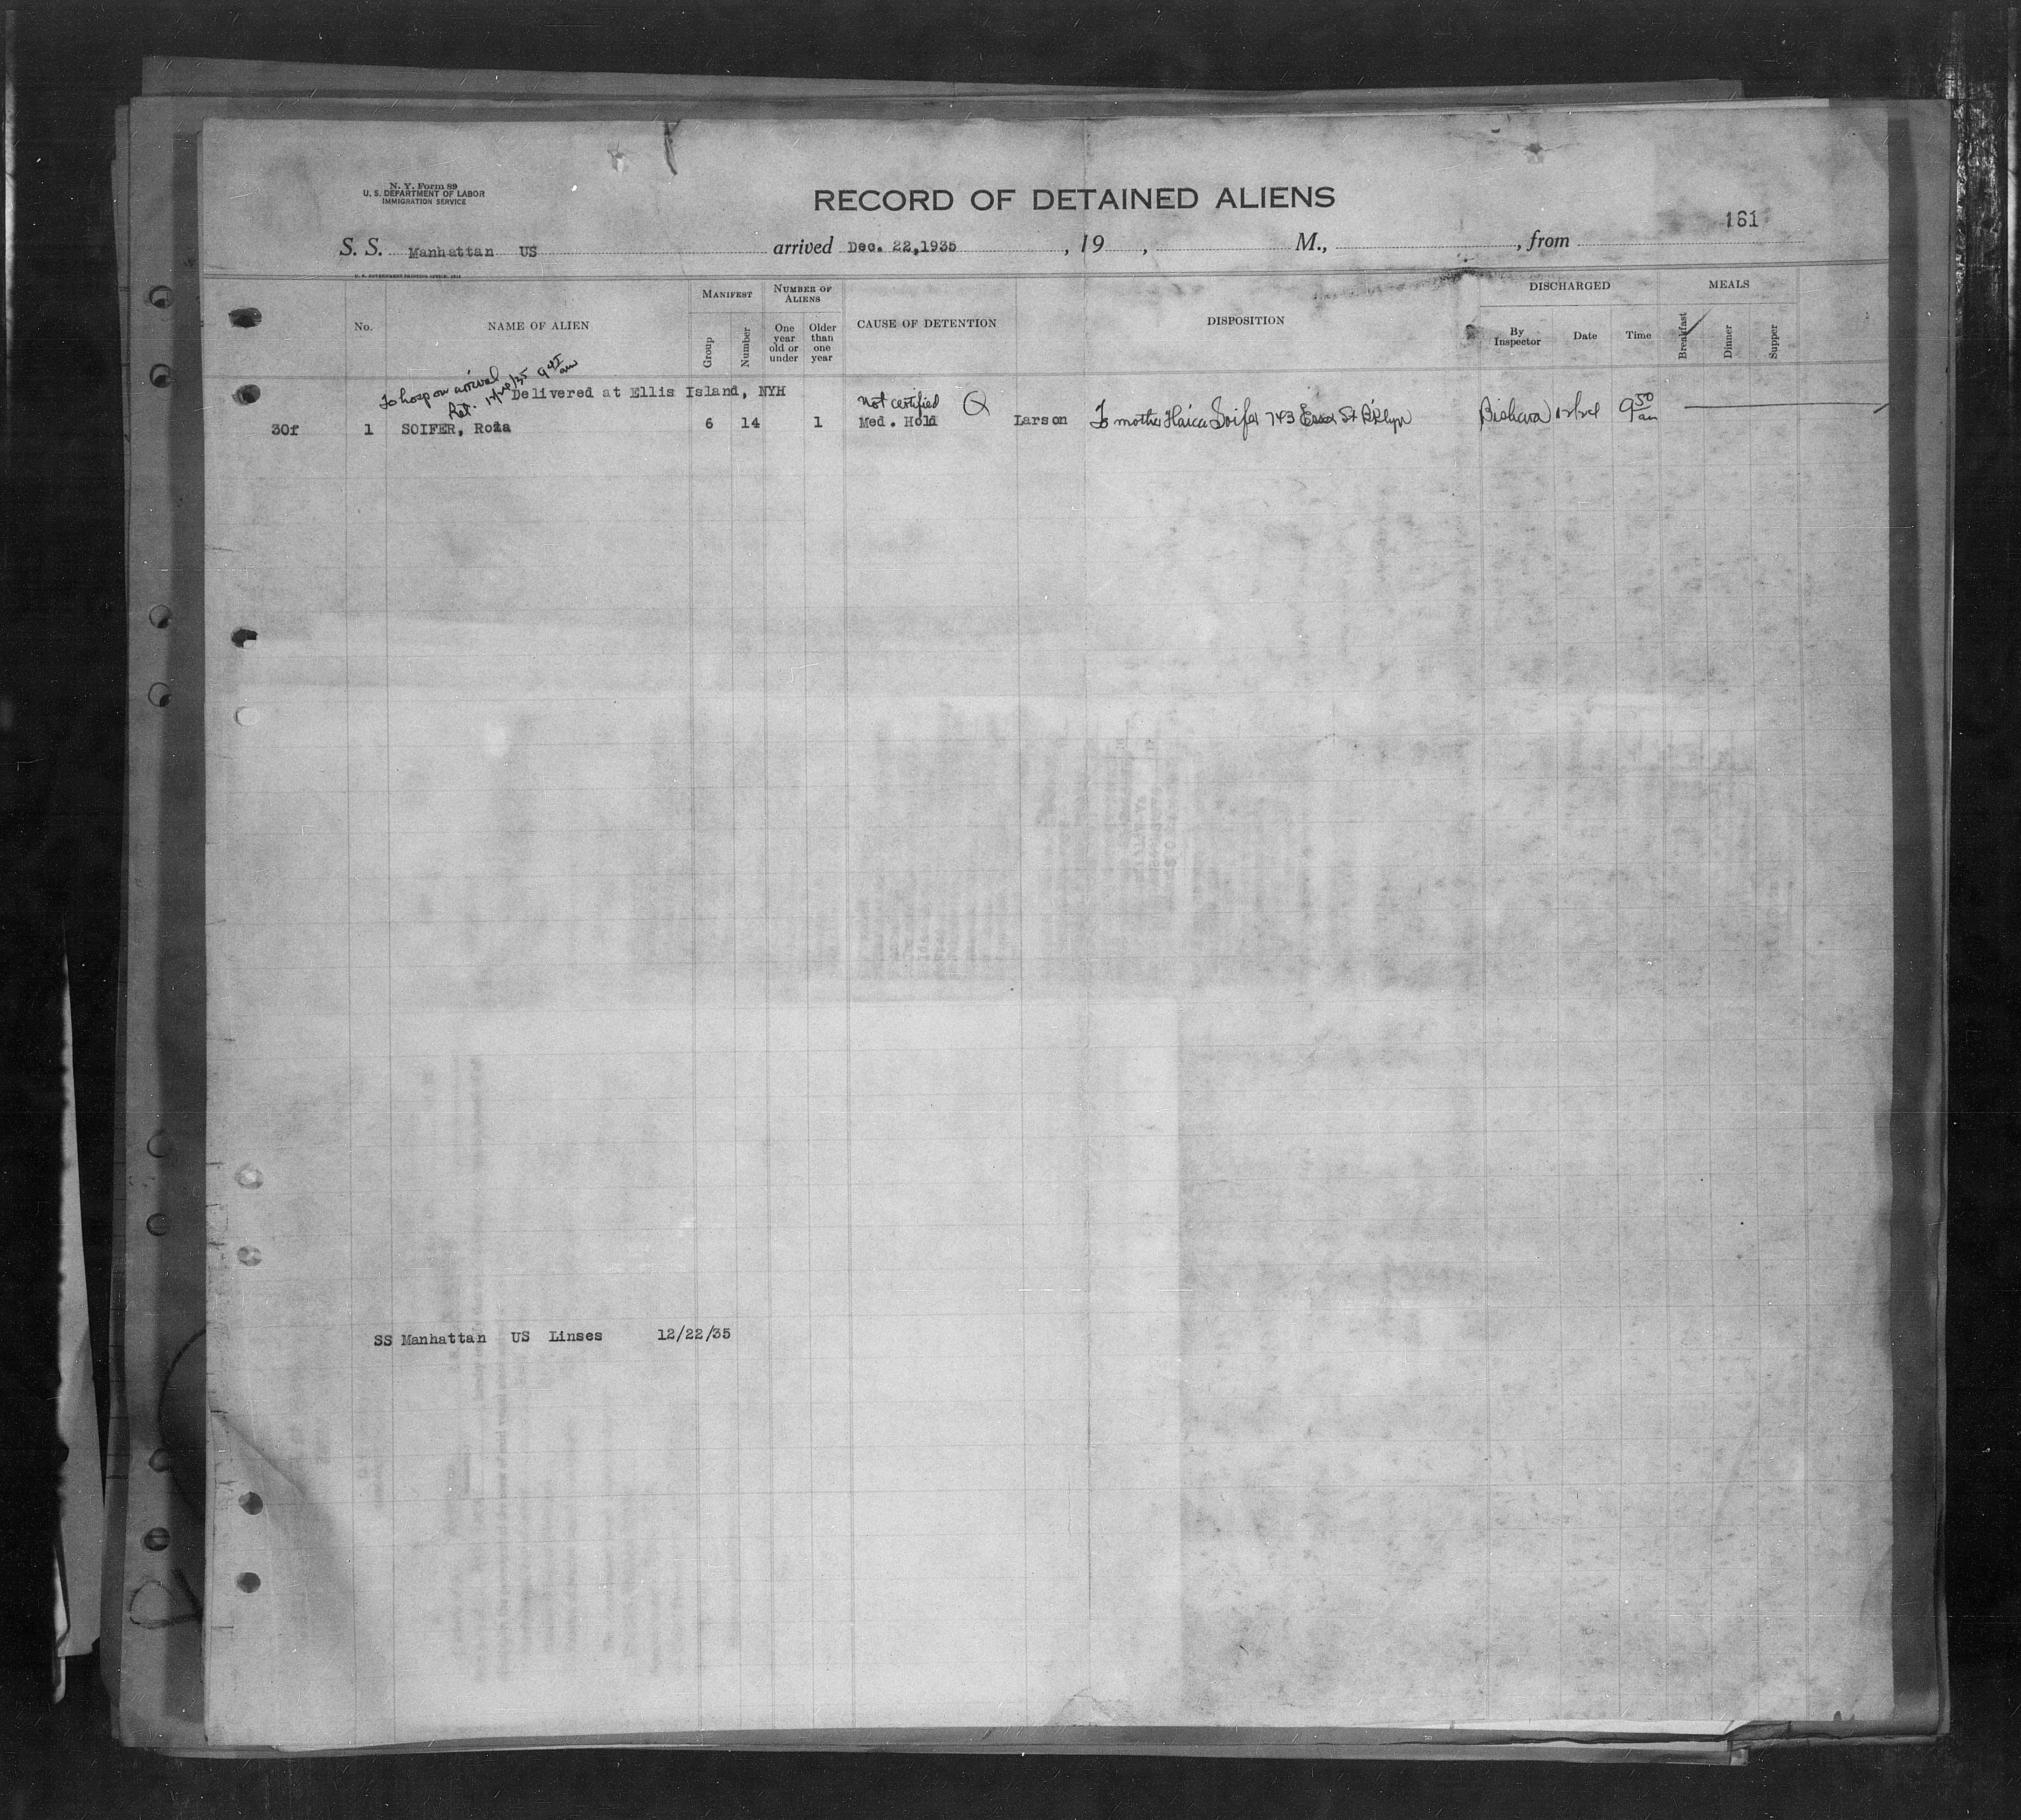 N. Y. Form 89
U. S. DEPARTMENT OF LABOR
IMMIGRATION SERVICE
RECORD OF DETAINED ALIENS
161
S. S. Manhattan US arrived Dec. 22,1935, 19 , M., , from
U. S. GOVERNMENT PRINTING OFFICE
No.
NAME OF ALIEN
MANIFEST
Group
Number
NUMBER OF ALIENS
One year old or under
Older than one year
CAUSE OF DETENTION
DISPOSITION
DISCHARGED
By Inspector
Date
Time
MEALS
Breakfast
Dinner
Supper
To hosp on arrival
Ret. 9 45 am
Delivered at Ellis Island, NYH
Not certified
30f 1 SOIFER, Roza 6 14 1 Med. Hold Larson To mother Haica Soifer 743 St B'klyn 9 50 am
SS Manhattan US Linses 12/22/35